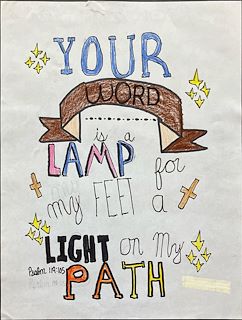 YOUR
WORD
is a
LAMP for
my FEET a
LIGHT on My
Psalm 119:105
PATH